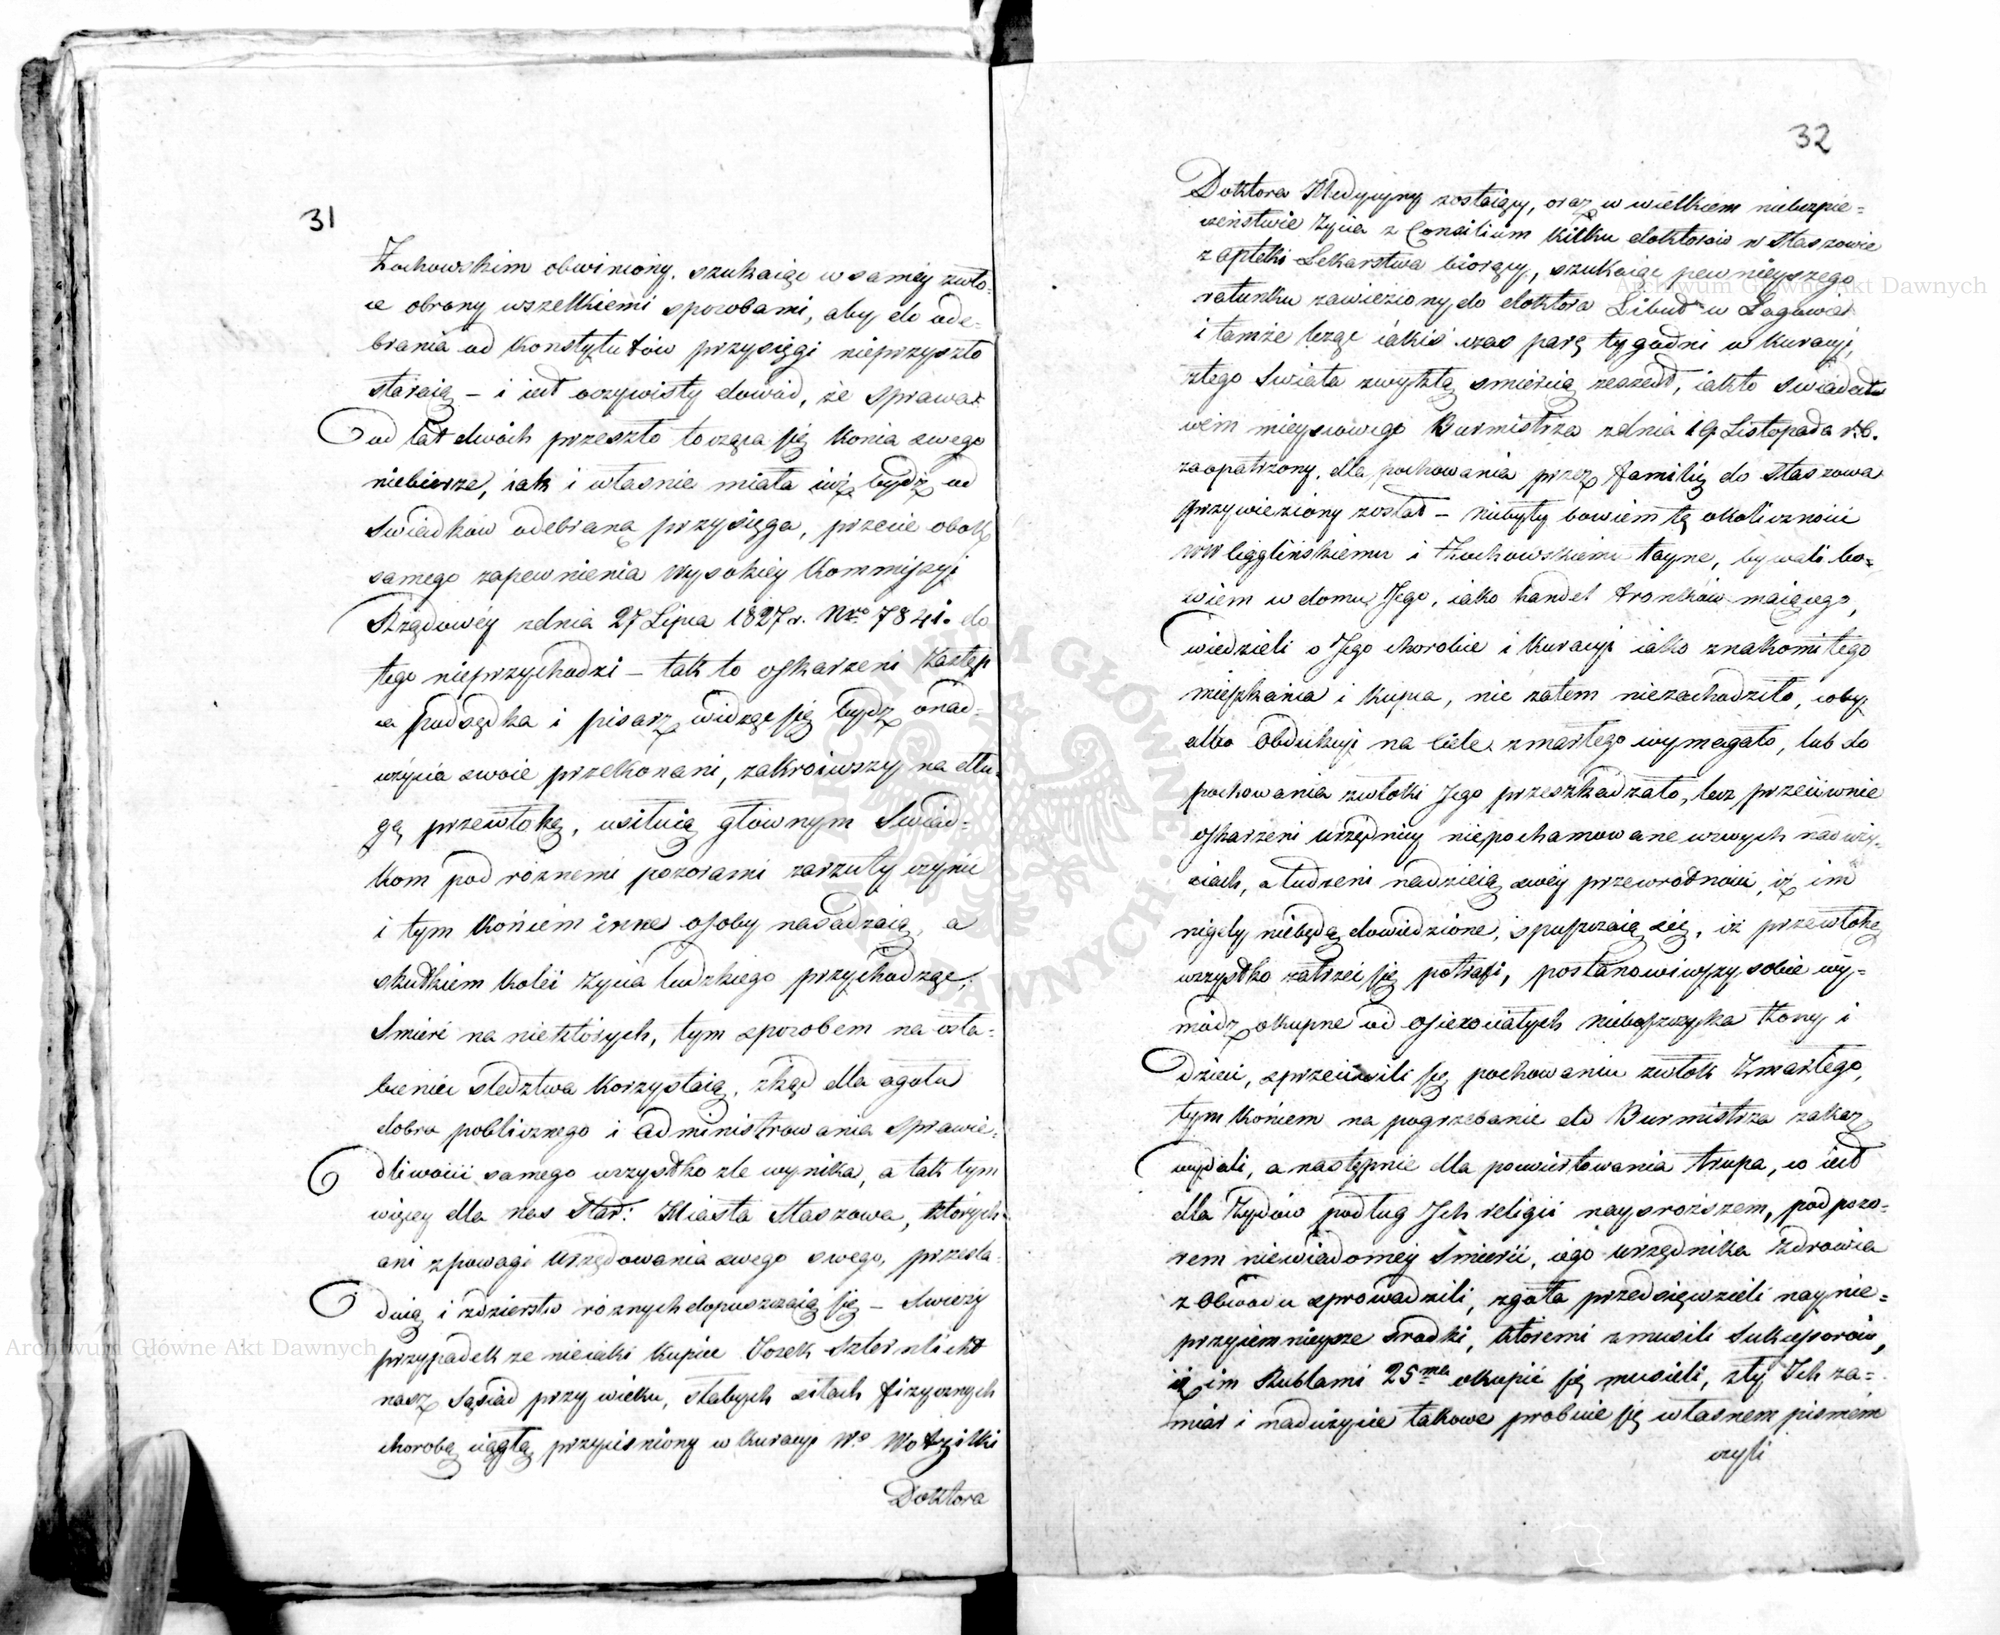 31
Żochowskim obwiniony, szukaiąc w samey zwło-
ce obrony wszelkiemi sposobami, aby do ode-
brania od Konstytutów przysięgi nieprzyszło
staraią – i iest oczywisty dowód, że sprawa
od lat dwóch przeszło tocząca się konca swego
niebierze, iak i własnie miała iuż bydź od
Swiadków odebraną przysięga, przecie obok
samego zapewnienia Wysokiey Kommissyi
Rządowéy zdnia 27 Lipca 1827 r. Nro 7841. do
tego nieprzychodzi – tak to oskarzeni Zastęp
ca podsędka i pisarz widząc się bydź onad-
użycia swoie przekonani, zakroiwszy na dłu-
gą przewłokę, usiłuią głownym Swiad-
kom pod róznemi pozorami zarzuty czynić
i tym końcem inne osoby nasadzaią, a
skutkiem kolei życia ludzkiego przychodzące,
Smierć na niektórych, tym sposobem na osła-
bienie sledztwa korzystaią, zkąd dla ogółu
dobra publicznego i administrowania Sprawie-
dliwości samego wszystko złe wynika, a tak tym
więcey dla nas Star: Miasta Staszowa, których
ani z powagi Urzędowania swego swego, przesla-
duią i zdzierstw róznych dopuszczaią się – Swieży
przypadek ze nieiaki kupiec Josek Szternlicht
nasz Sąsiad przy wieku, słabych siłach fizycznych
chorobą ciągłą przycisniony w kuracyi Wo Wotzilki
Doktora
32
Doktora Medycyny zostaiący, oraz w wielkiem niebezpie-
czeństwie życia z Consilium kilku doktorów w Staszowie
z apteki Lekarstwa biorący, szukaiąc pewnieyszego
ratunku zawieziony do doktora Libud w Łagowie
i tamże leząc iakiś czas parę tygodni w kuracyi,
z tego Swiata zwykłą smiercią zeszedł, iakto swiadect
wem mieyscowego Burmistrza zdnia 19 Listopada r. b.
zaopatrzony, dla pochowania przez familię do Staszowa
przywieziony został – niebyły bowiem tę okoliczności
WW Cygglińskiemu i Żochowskiemu tayne, bywali bo-
wiem w domu Jego, iako handel trunków maiącego,
wiedzieli o Jego chorobie i kuracyi iako znakomitego
mieszkania i kupca, nic zatem niezachodziło, coby
albo obdukcyi na ciele zmarłego wymagało, lub do
pochowania zwłoki Jego przeszkadzało, lecz przeciwnie
oskarzeni urzędnicy niepochamowane w swych naduży-
ciach, a łudzeni nadzieią swéy przewrotności, iż im
nigdy niebędą dowiedzione, i spuszczaią się, iż przewłoką
wszystko zatrzeć się potrafi, postanowiwszy sobie wy-
módz okupne od osierociałych nieboszczyka Zony i
dzieci, sprzeciwili się pochowaniu zwłok Zmarłego,
tym końcem na pogrzebanie do Burmistrza zakaz
wydali, a następnie dla poćwiertowania trupa, co iest
dla Żydów podług Ich religii naysroższem, pod pozo-
rem niewiadomey Smierci, iego urzędnika zdrowia
z Obwodu sprowadzili, zgoła przedsięwzieli naynie-
przyiemnieysze srodki, któremi zmusili Sukcessorów,
iż im Rublami 25ma okupić się musieli, zły Ich za-
miar i nadużycie takowe probuie się własnem pismem
czyli